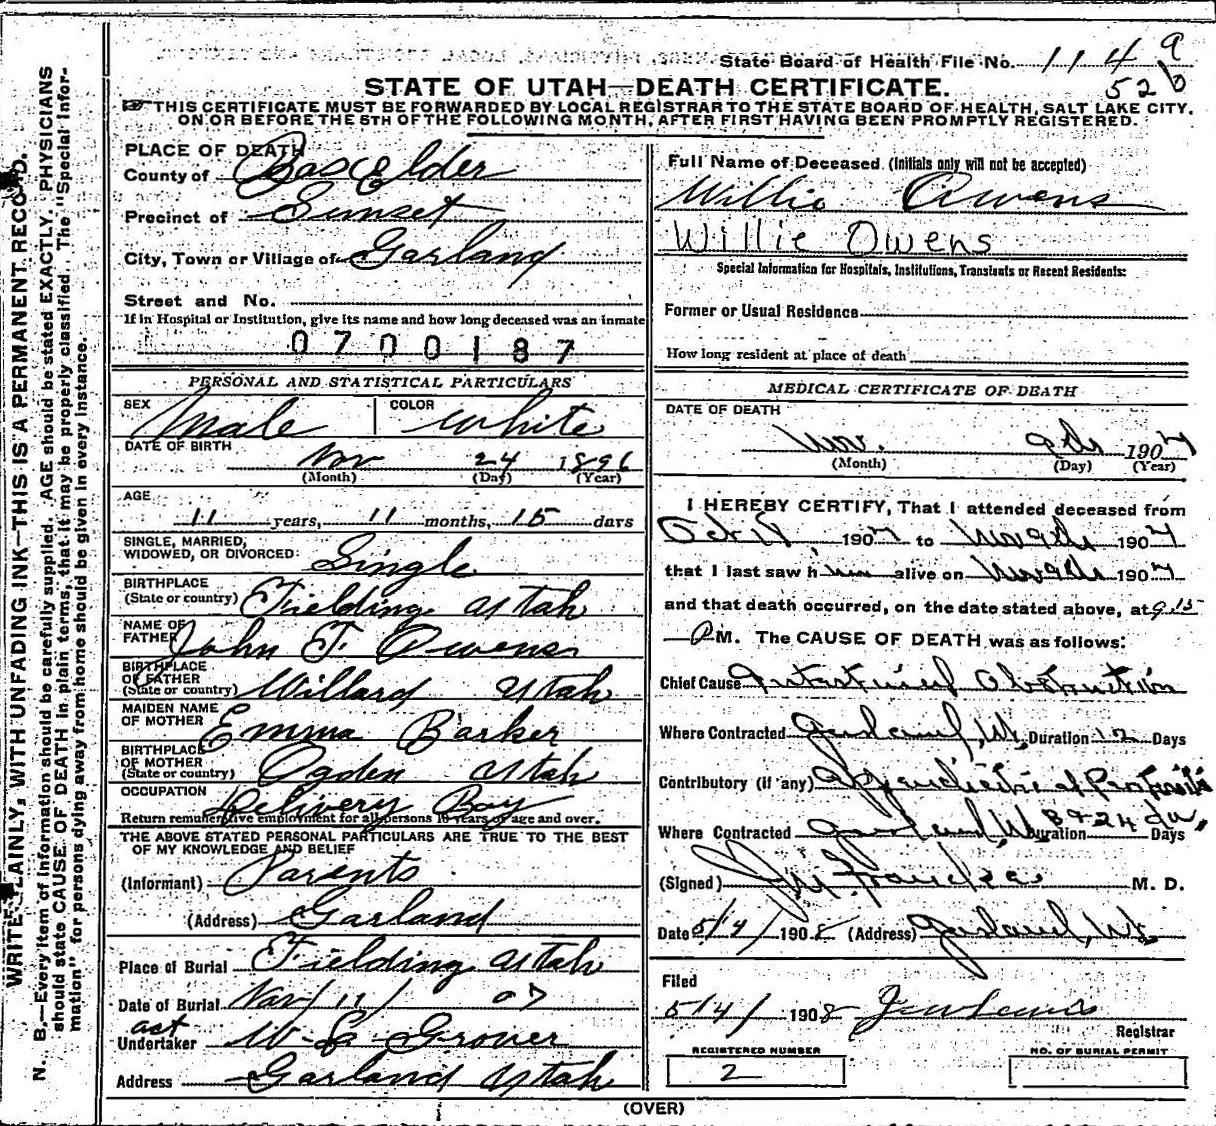 State Board of Health File No. 114 a
52 b
STATE OF UTAH—DEATH CERTIFICATE.
THIS CERTIFICATE MUST BE FORWARDED BY LOCAL REGISTRAR TO THE STATE BOARD OF HEALTH, SALT LAKE CITY,
ON OR BEFORE THE 5TH OF THE FOLLOWING MONTH, AFTER FIRST HAVING BEEN PROMPTLY REGISTERED.
WRITE PLAINLY, WITH UNFADING INK—THIS IS A PERMANENT RECORD.
N. B.—Every item of information should be carefully supplied. AGE should be stated EXACTLY. PHYSICIANS
should state CAUSE OF DEATH in plain terms, that it may be properly classified. The "Special Infor-
mation" for persons dying away from home should be given in every instance.
PLACE OF DEATH
County of Box Elder
Precinct of Sunset
City, Town or Village of Garland
Street and No.
If in Hospital or Institution, give its name and how long deceased was an inmate
0700187
PERSONAL AND STATISTICAL PARTICULARS
SEX Male COLOR White
DATE OF BIRTH
Nov 24 1896
(Month) (Day) (Year)
AGE
11 years, 11 months, 15 days
SINGLE, MARRIED,
WIDOWED, OR DIVORCED: Single
BIRTHPLACE
(State or country) Fielding Utah
NAME OF
FATHER John F. Owens
BIRTHPLACE
OF FATHER
(State or country) Willard Utah
MAIDEN NAME
OF MOTHER Emma Barker
BIRTHPLACE
OF MOTHER
(State or country) Ogden Utah
OCCUPATION Delivery Boy
Return remunerative employment for all persons 10 years of age and over.
THE ABOVE STATED PERSONAL PARTICULARS ARE TRUE TO THE BEST
OF MY KNOWLEDGE AND BELIEF
(Informant) Parents
(Address) Garland
Place of Burial Fielding Utah
Date of Burial Nov 11 / 07
act
Undertaker W. L. Grover
Address Garland Utah
Full Name of Deceased (Initials only will not be accepted)
Willie Owens
Willie Owens
Special Information for Hospitals, Institutions, Transients or Recent Residents:
Former or Usual Residence
How long resident at place of death
MEDICAL CERTIFICATE OF DEATH
DATE OF DEATH
Nov. 9th 1907
(Month) (Day) (Year)
I HEREBY CERTIFY, That I attended deceased from
Oct 1907 to Nov 9th 1907
that I last saw him alive on Nov 9th 1907
and that death occurred, on the date stated above, at 9.15
P M. The CAUSE OF DEATH was as follows:
Chief Cause Intestinal Obstruction
Where Contracted Garland, Ut. Duration 12 Days
Contributory (if any) Appendicitis
Where Contracted Garland Ut. Duration Days
(Signed) M. D.
Date 5/4/ 1908 (Address) Garland, Ut.
Filed
5/4/ 1908
Registrar
REGISTERED NUMBER
2
NO. OF BURIAL PERMIT
(OVER)